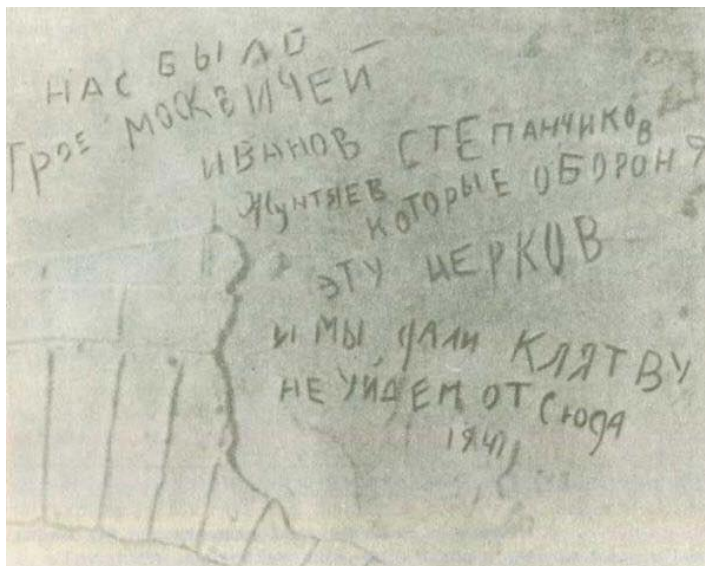 НАС БЫЛО
Трое МОСКВИЧЕЙ
ИВАНОВ СТЕПАНЧИКОВ
Жунтяев КОТОРЫЕ ОБОРОНЯ
ЭТУ ЦЕРКОВ
И МЫ ДАЛИ КЛЯТВУ
НЕ УЙДЕМ ОТ СЮДА
1941